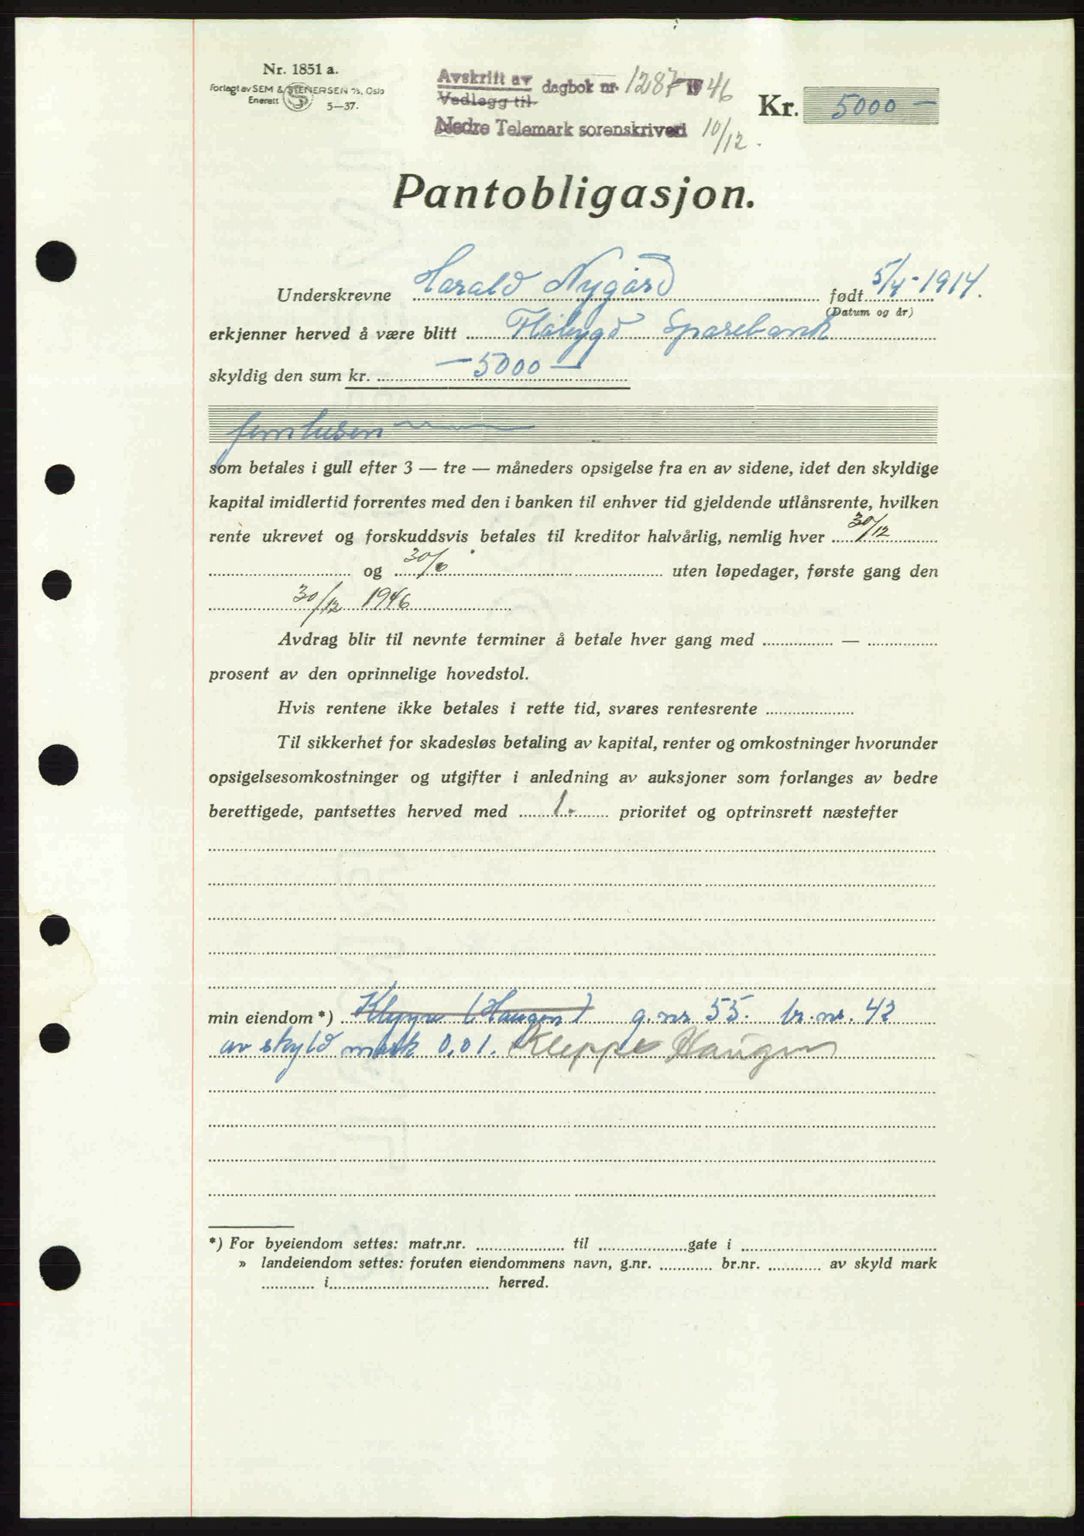 Nr. 1851 a.
Forlagt av SEM & STENERSEN A/S, Oslo
Enerett 5—37.
Avskrift av dagbok nr. 1287 1946
Vedlegg til
Nedre Telemark sorenskriveri 10/12.
Kr. 5000 —
Pantobligasjon.
Underskrevne Harald Nygård født 5/4-1914.
(Datum og år)
erkjenner herved å være blitt Flåbygd Sparebank
skyldig den sum kr. — 5000 —
femtusen
som betales i gull efter 3 — tre — måneders opsigelse fra en av sidene, idet den skyldige
kapital imidlertid forrentes med den i banken til enhver tid gjeldende utlånsrente, hvilken
rente ukrevet og forskuddsvis betales til kreditor halvårlig, nemlig hver 30/12
og 30/6 uten løpedager, første gang den
30/12 1946
Avdrag blir til nevnte terminer å betale hver gang med —
prosent av den oprinnelige hovedstol.
Hvis rentene ikke betales i rette tid, svares rentesrente
Til sikkerhet for skadesløs betaling av kapital, renter og omkostninger hvorunder
opsigelsesomkostninger og utgifter i anledning av auksjoner som forlanges av bedre
berettigede, pantsettes herved med 1. prioritet og optrinsrett næstefter
min eiendom *) (Haugen) g.nr. 55. br.nr. 42
av skyld mark 0,01. Kleppe Haugen
*) For byeiendom settes: matr.nr. til gate i
» landeiendom settes: foruten eiendommens navn, g.nr. br.nr. av skyld mark
i herred.